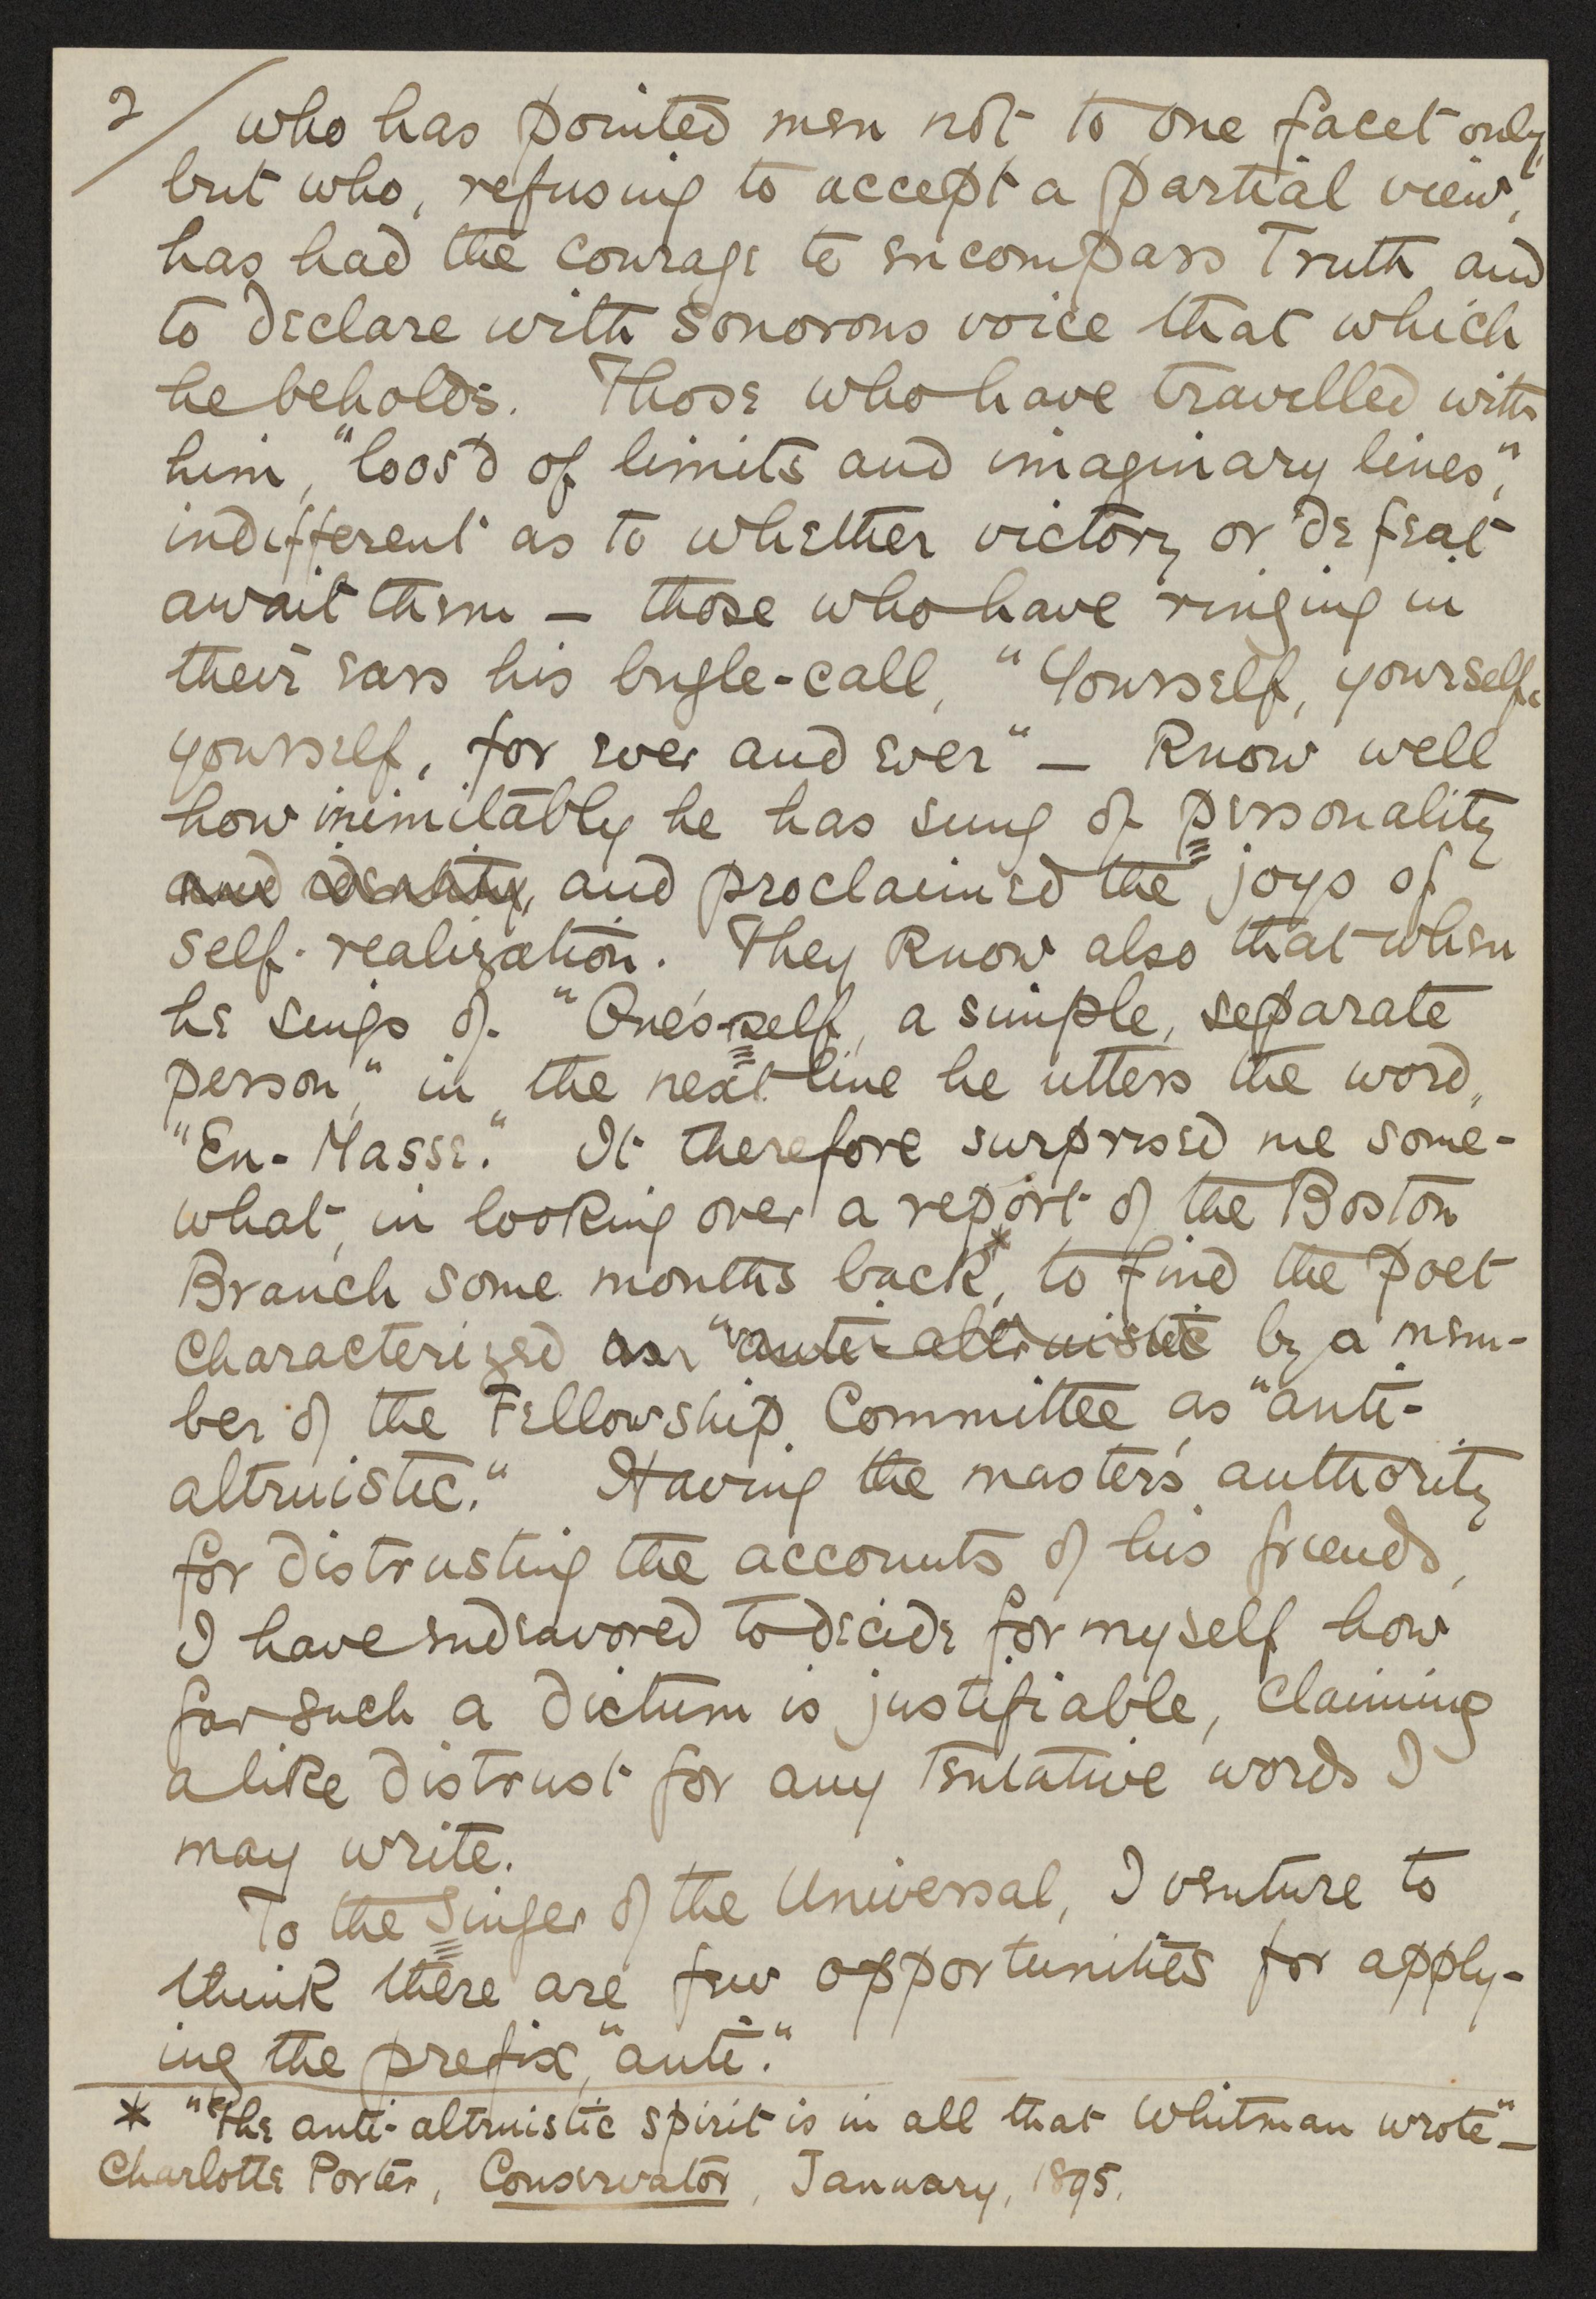 2/ who has pointed men not to one facet only,
but who, refusing to accept a partial view,
has had the courage to encompass Truth and
to declare with sonorous voice that which
he beholds. Those who have travelled with
him, "loos'd of limits and imaginary lines",
indifferent as to whether victory or defeat
await them — those who have ringing in
their ears his bugle-call, "Yourself, yourself,
yourself, for ever and ever" — know well
how inimitably he has sung of personality
and identity, and proclaimed the joys of
self-realization. They know also that when
he sings of "One's-self, a simple, separate
person," in the next line he utters the word,
"En-Masse." It therefore surprised me some-
what, in looking over a report of the Boston
Branch some months back*, to find the poet
characterized as "anti-altruistic by a mem-
ber of the Fellowship Committee as "anti-
altruistic." Having the master's authority
for distrusting the accounts of his friends,
I have endeavored to decide for myself how
far such a dictum is justifiable, claiming
a like distrust for any tentative words I
may write.
To the Singer of the Universal, I venture to
think there are few opportunities for apply-
ing the prefix, "anti."
* "The anti-altruistic spirit is in all that Whitman wrote" —
Charlotte Porter, Conservator, January, 1895.